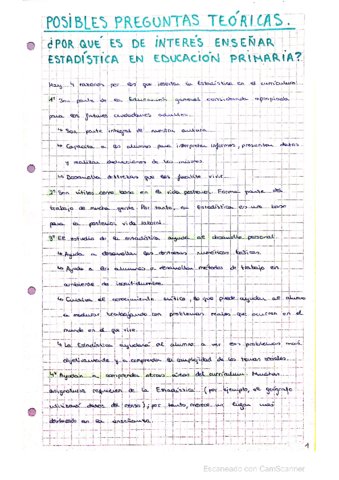 POSIBLES PREGUNTAS TEÓRICAS.
¿POR QUÉ ES DE INTERÉS ENSEÑAR
ESTADÍSTICA EN EDUCACIÓN PRIMARIA?
Hay 4 razones por las que la Estadística en el currículum:
1º Son parte de la Educación general considerada apropiada
para los futuros ciudadanos adultos.
↳ Son parte integral de nuestra cultura
↳ Capacita a los alumnos para interpretar informes, presentar datos
y realizar deducciones de los mismos.
↳ Desarrolla destrezas que les facilita vivir.
2º Son útiles como base en la vida posterior. Forma parte del
trabajo de mucha gente. Por tanto, la Estadística es una base
para la posterior vida laboral.
3º El estudio de la estadística ayuda al desarrollo personal.
↳ Ayuda a desarrollar las destrezas numéricas básicas.
↳ Ayuda a los alumnos a desarrollar métodos de trabajo en
ambiente de incertidumbre.
↳ Cultiva el conocimiento crítico, lo que puede ayudar al alumno
a madurar trabajando con problemas reales que ocurren en el
mundo en el que vive.
↳ La Estadística ayudará al alumno a ver los problemas más
objetivamente y a comprender la complejidad de los temas sociales.
4º Ayudan a comprender otras áreas del currículum. Muchas
asignaturas requieren de la Estadística (por ejemplo, el geógrafo
utilizará datos de censo); por tanto, merece un lugar más
destacado en la enseñanza.
1
Escaneado con CamScanner